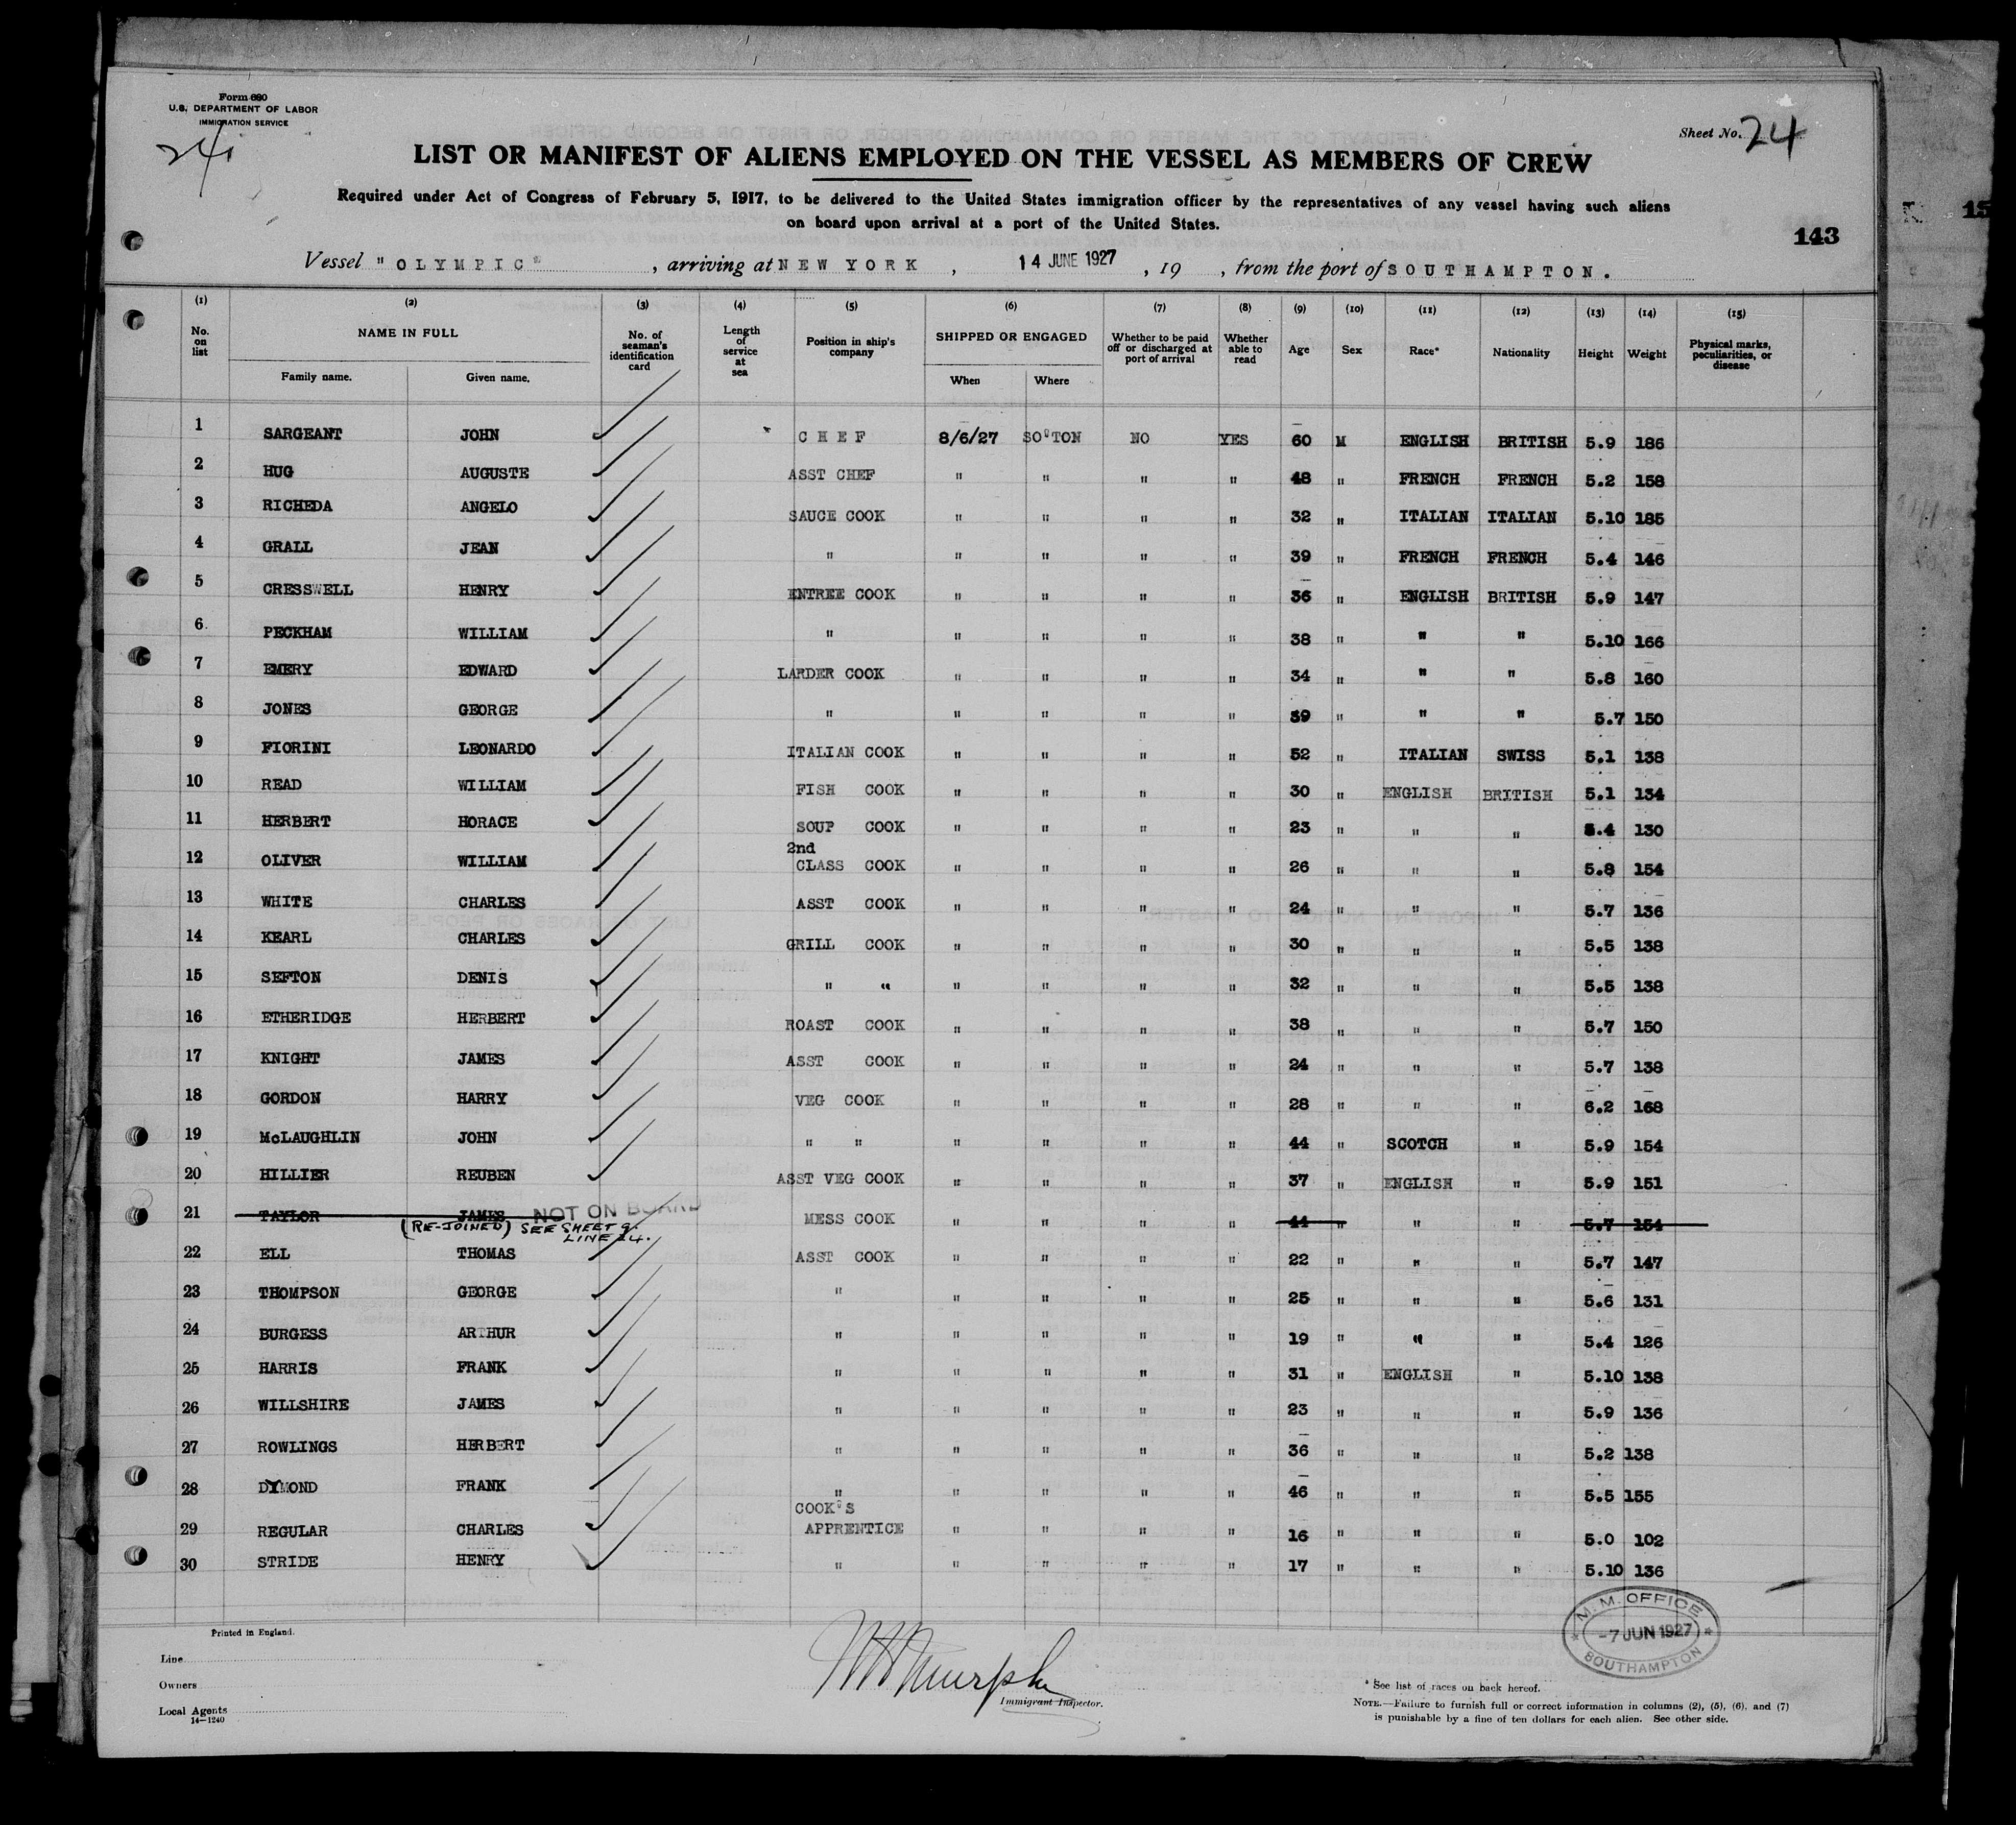 Form 680
U.S. DEPARTMENT OF LABOR
IMMIGRATION SERVICE
24
Sheet No. 24
LIST OR MANIFEST OF ALIENS EMPLOYED ON THE VESSEL AS MEMBERS OF CREW
Required under Act of Congress of February 5, 1917, to be delivered to the United States immigration officer by the representatives of any vessel having such aliens
on board upon arrival at a port of the United States.
143
Vessel "OLYMPIC" , arriving at NEW YORK , 14 JUNE 1927 , 19 , from the port of SOUTHAMPTON.
(1) (2) (3) (4) (5) (6) (7) (8) (9) (10) (11) (12) (13) (14) (15)
No. on list NAME IN FULL No. of seaman's identification card Length of service at sea Position in ship's company SHIPPED OR ENGAGED Whether to be paid off or discharged at port of arrival Whether able to read Age Sex Race* Nationality Height Weight Physical marks, peculiarities, or disease
Family name. Given name. When Where
1 SARGEANT JOHN CHEF 8/6/27 SO'TON NO YES 60 M ENGLISH BRITISH 5.9 186
2 HUG AUGUSTE ASST CHEF " " " " 48 " FRENCH FRENCH 5.2 158
3 RICHEDA ANGELO SAUCE COOK " " " " 32 " ITALIAN ITALIAN 5.10 185
4 GRALL JEAN " " " " " 39 " FRENCH FRENCH 5.4 146
5 CRESSWELL HENRY ENTREE COOK " " " " 36 " ENGLISH BRITISH 5.9 147
6 PECKHAM WILLIAM " " " " " 38 " " " 5.10 166
7 EMERY EDWARD LARDER COOK " " " " 34 " " " 5.8 160
8 JONES GEORGE " " " " " 39 " " " 5.7 150
9 FIORINI LEONARDO ITALIAN COOK " " " " 52 " ITALIAN SWISS 5.1 138
10 READ WILLIAM FISH COOK " " " " 30 " ENGLISH BRITISH 5.1 134
11 HERBERT HORACE SOUP COOK " " " " 23 " " " 5.4 130
12 OLIVER WILLIAM 2nd CLASS COOK " " " " 26 " " " 5.8 154
13 WHITE CHARLES ASST COOK " " " " 24 " " " 5.7 136
14 KEARL CHARLES GRILL COOK " " " " 30 " " " 5.5 138
15 SEFTON DENIS " " " " " " 32 " " " 5.5 138
16 ETHERIDGE HERBERT ROAST COOK " " " " 38 " " " 5.7 150
17 KNIGHT JAMES ASST COOK " " " " 24 " " " 5.7 138
18 GORDON HARRY VEG COOK " " " " 28 " " " 6.2 168
19 McLAUGHLIN JOHN " " " " " " 44 " SCOTCH " 5.9 154
20 HILLIER REUBEN ASST VEG COOK " " " " 37 " ENGLISH " 5.9 151
21 TAYLOR JAMES NOT ON BOARD MESS COOK " " " " 44 " " " 5.7 154
(RE-JOINED) SEE SHEET 9.
LINE 24.
22 ELL THOMAS ASST COOK " " " " 22 " " " 5.7 147
23 THOMPSON GEORGE " " " " " 25 " " " 5.6 131
24 BURGESS ARTHUR " " " " " 19 " " " 5.4 126
25 HARRIS FRANK " " " " " 31 " ENGLISH " 5.10 138
26 WILLSHIRE JAMES " " " " " 23 " " " 5.9 136
27 ROWLINGS HERBERT " " " " " 36 " " " 5.2 138
28 DYMOND FRANK " " " " " 46 " " " 5.5 155
29 REGULAR CHARLES COOK'S APPRENTICE " " " " 16 " " " 5.0 102
30 STRIDE HENRY " " " " " 17 " " " 5.10 136
M. M. OFFICE
-7 JUN 1927
SOUTHAMPTON
Printed in England.
Line
Owners
Local Agents
14-1240
Murphy
Immigrant Inspector.
* See list of races on back hereof.
NOTE.—Failure to furnish full or correct information in columns (2), (5), (6), and (7)
is punishable by a fine of ten dollars for each alien. See other side.